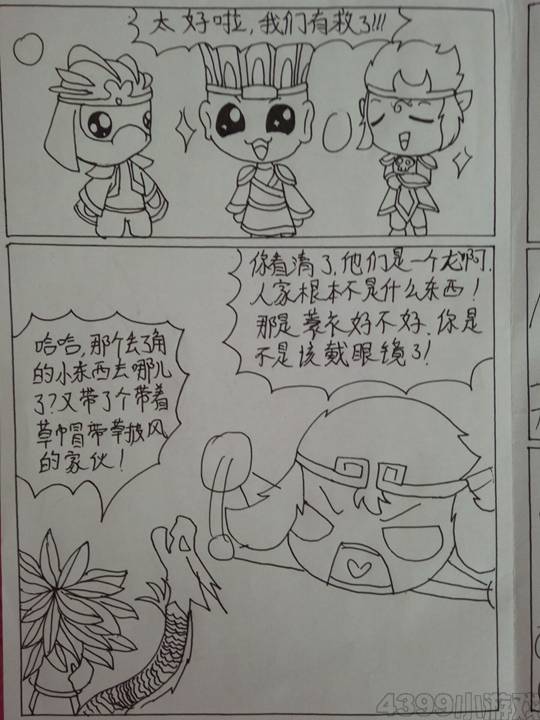 太好啦，我们有救了!!!
你看清了，他们是一个龙啊，
人家根本不是什么东西！
那是蓑衣好不好，你是
不是该戴眼镜了！
哈哈，那个去了角
的小东西去哪儿
了？又带了个带着
草帽带草披风
的家伙！
4399小游戏